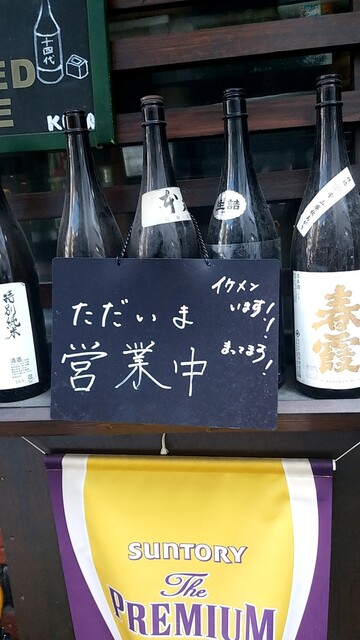 十四代
ED
E
K
生詰
特別純米
清酒
春霞
ただいま
営業中
イケメン
います!!
まってまろ!
SUNTORY
The
PREMIUM